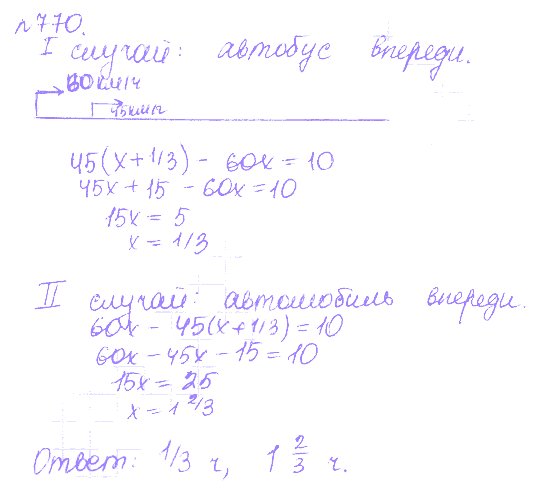 №770.
I случай: автобус впереди.
60 км/ч
45 км/ч
45(x+1/3) - 60x = 10
45x + 15 - 60x = 10
15x = 5
x = 1/3
II случай: автомобиль впереди.
60x - 45(x+1/3) = 10
60x - 45x - 15 = 10
15x = 25
x = 1 2/3
Ответ: 1/3 ч, 1 2/3 ч.